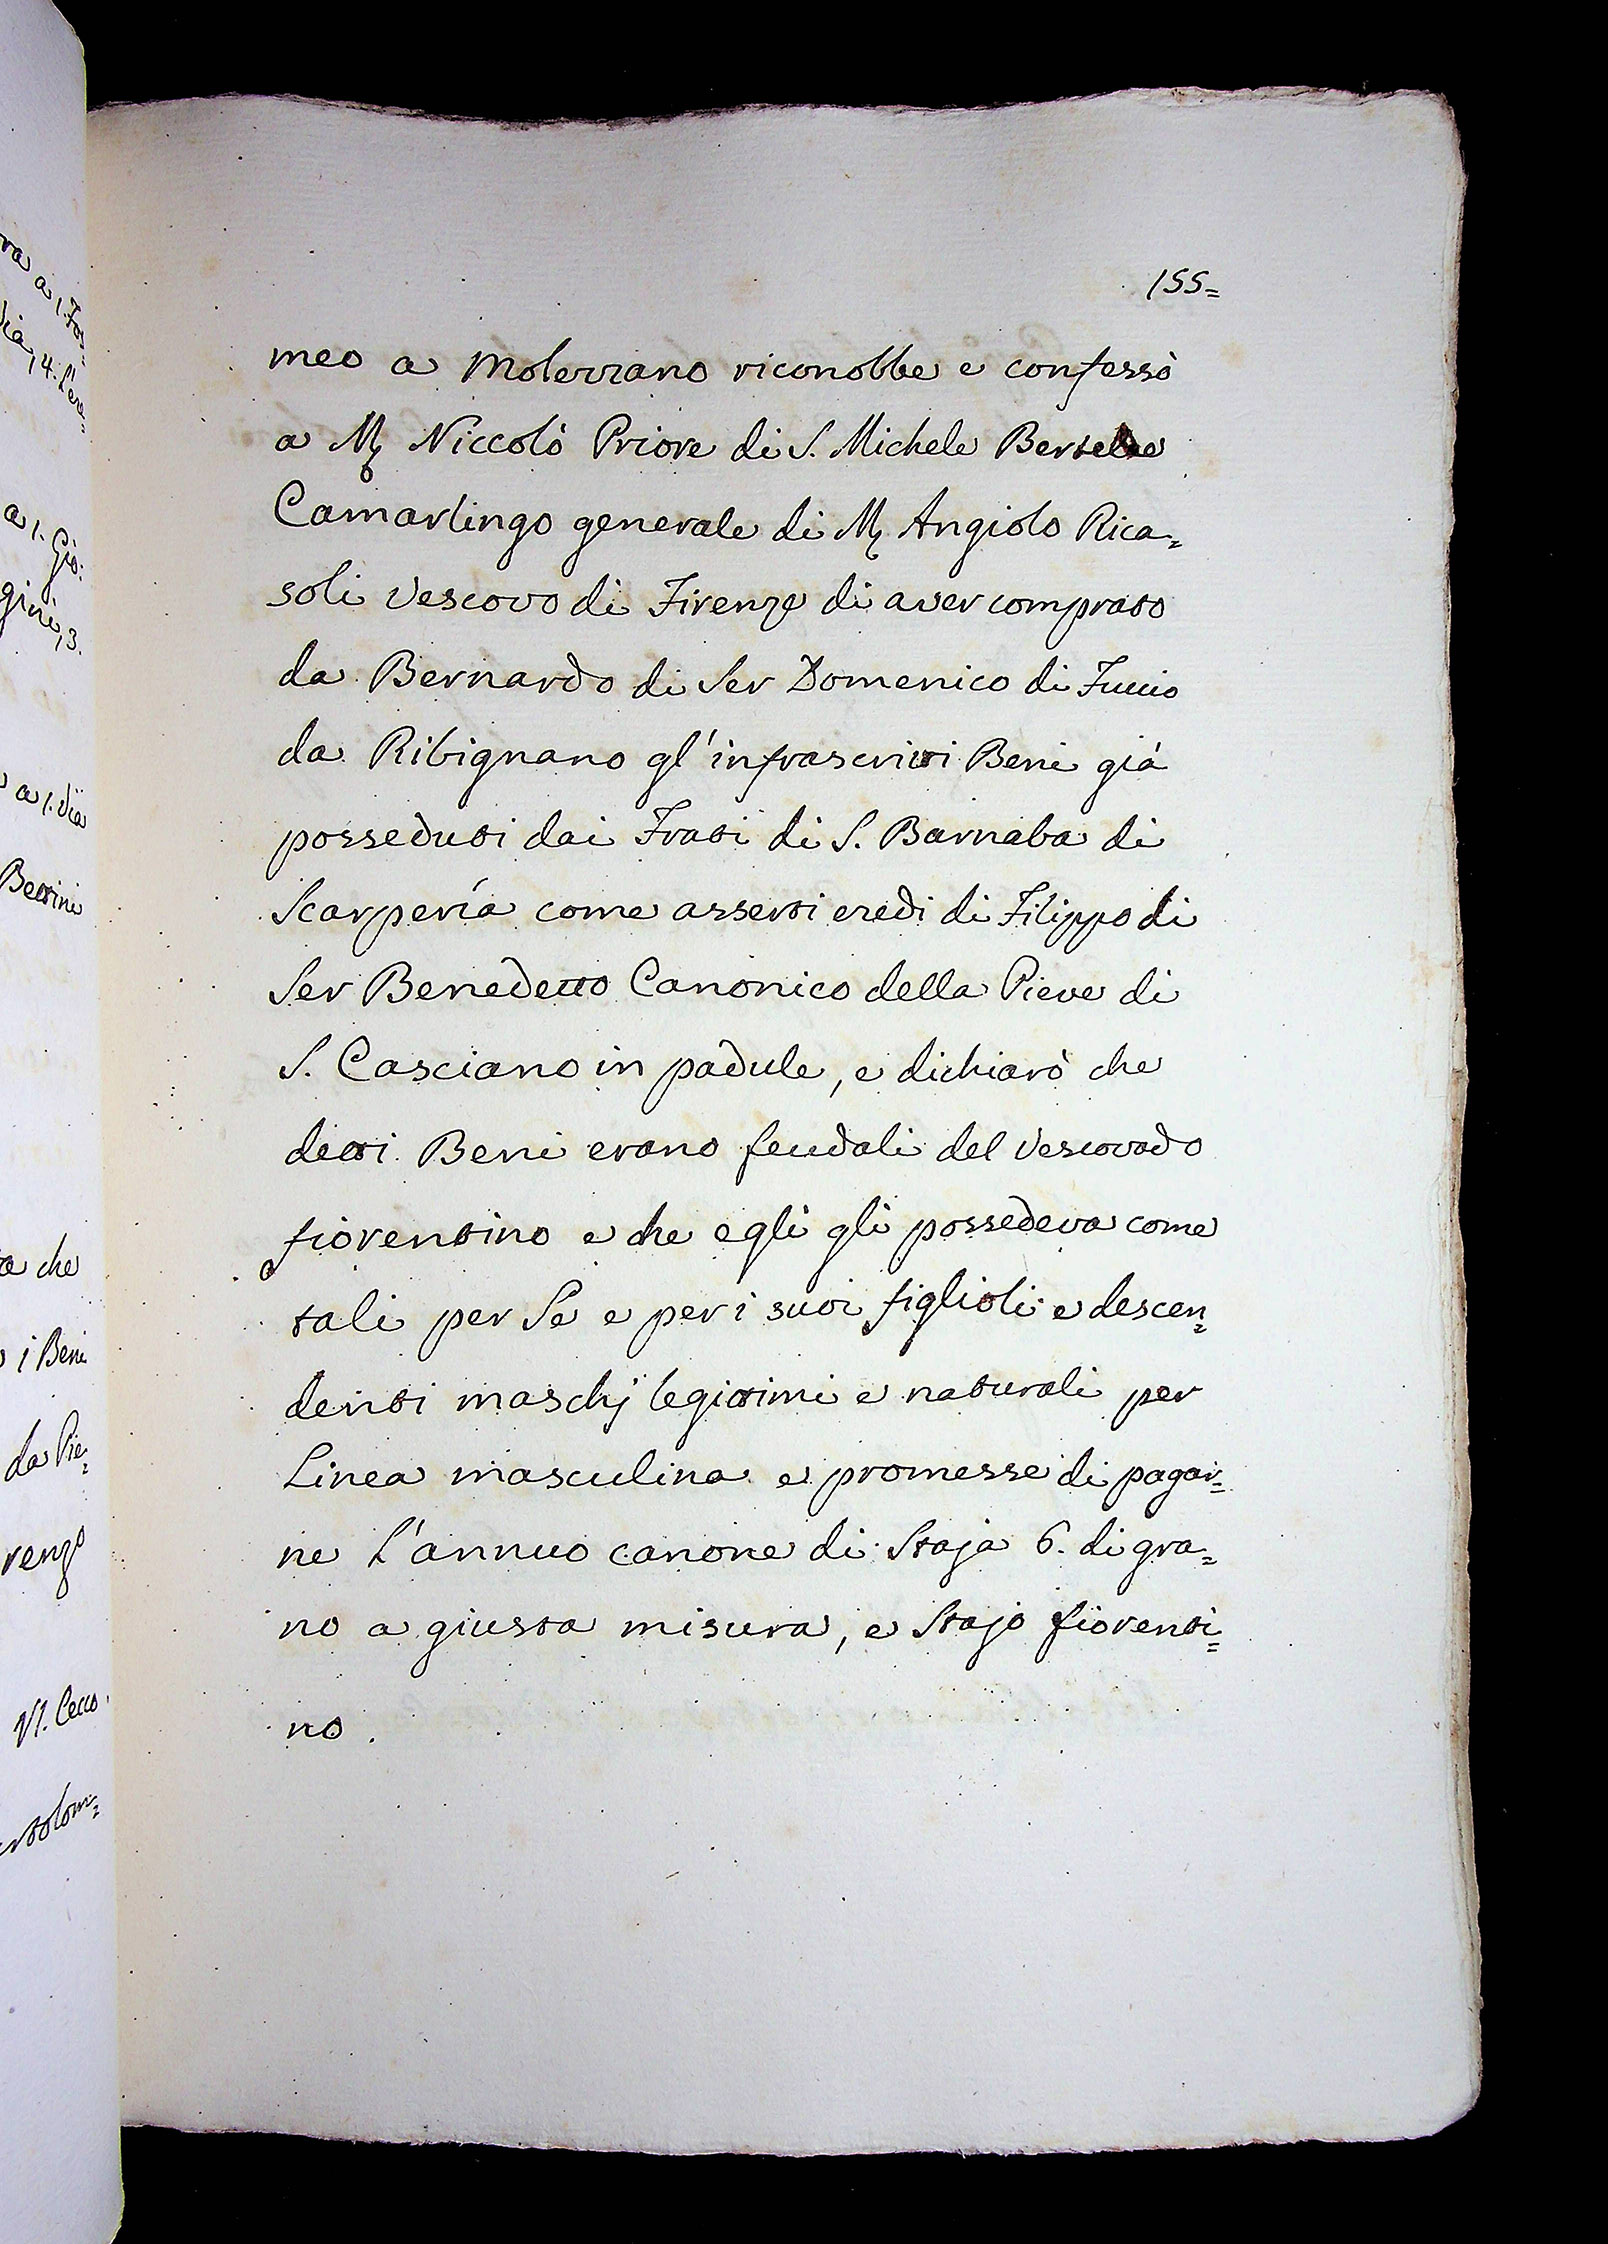 155=
meo a Molezzano riconobbe e confessò
a Mʳ Niccolò Priore di S. Michele Bertelde
Camarlingo generale di Mʳ Angiolo Rica=
soli Vescovo di Firenze di aver comprato
da Bernardo di Ser Domenico di Fuccio
da Ribignano gl'infrascritti Beni già
posseduti dai Frati di S. Barnaba di
Scarpería come asserti eredi di Filippo di
Ser Benedetto Canonico della Pieve di
S. Casciano in padule, e dichiarò che
detti Beni erano feudali del Vescovado
fiorentino e che egli gli possedeva come
tali per Se e per i suoi figlioli e descen=
denti maschj legittimi e naturali per
Linea masculina e promesse di pagar=
ne L'annuo canone di Staja 6. di gra=
no a giusta misura, e Stajo fiorenti=
no.
a 1. Gio:
gini, 3.
a 1. Via
Bettini
che
i Beni
da Pie=
renzo
VI. Cecco